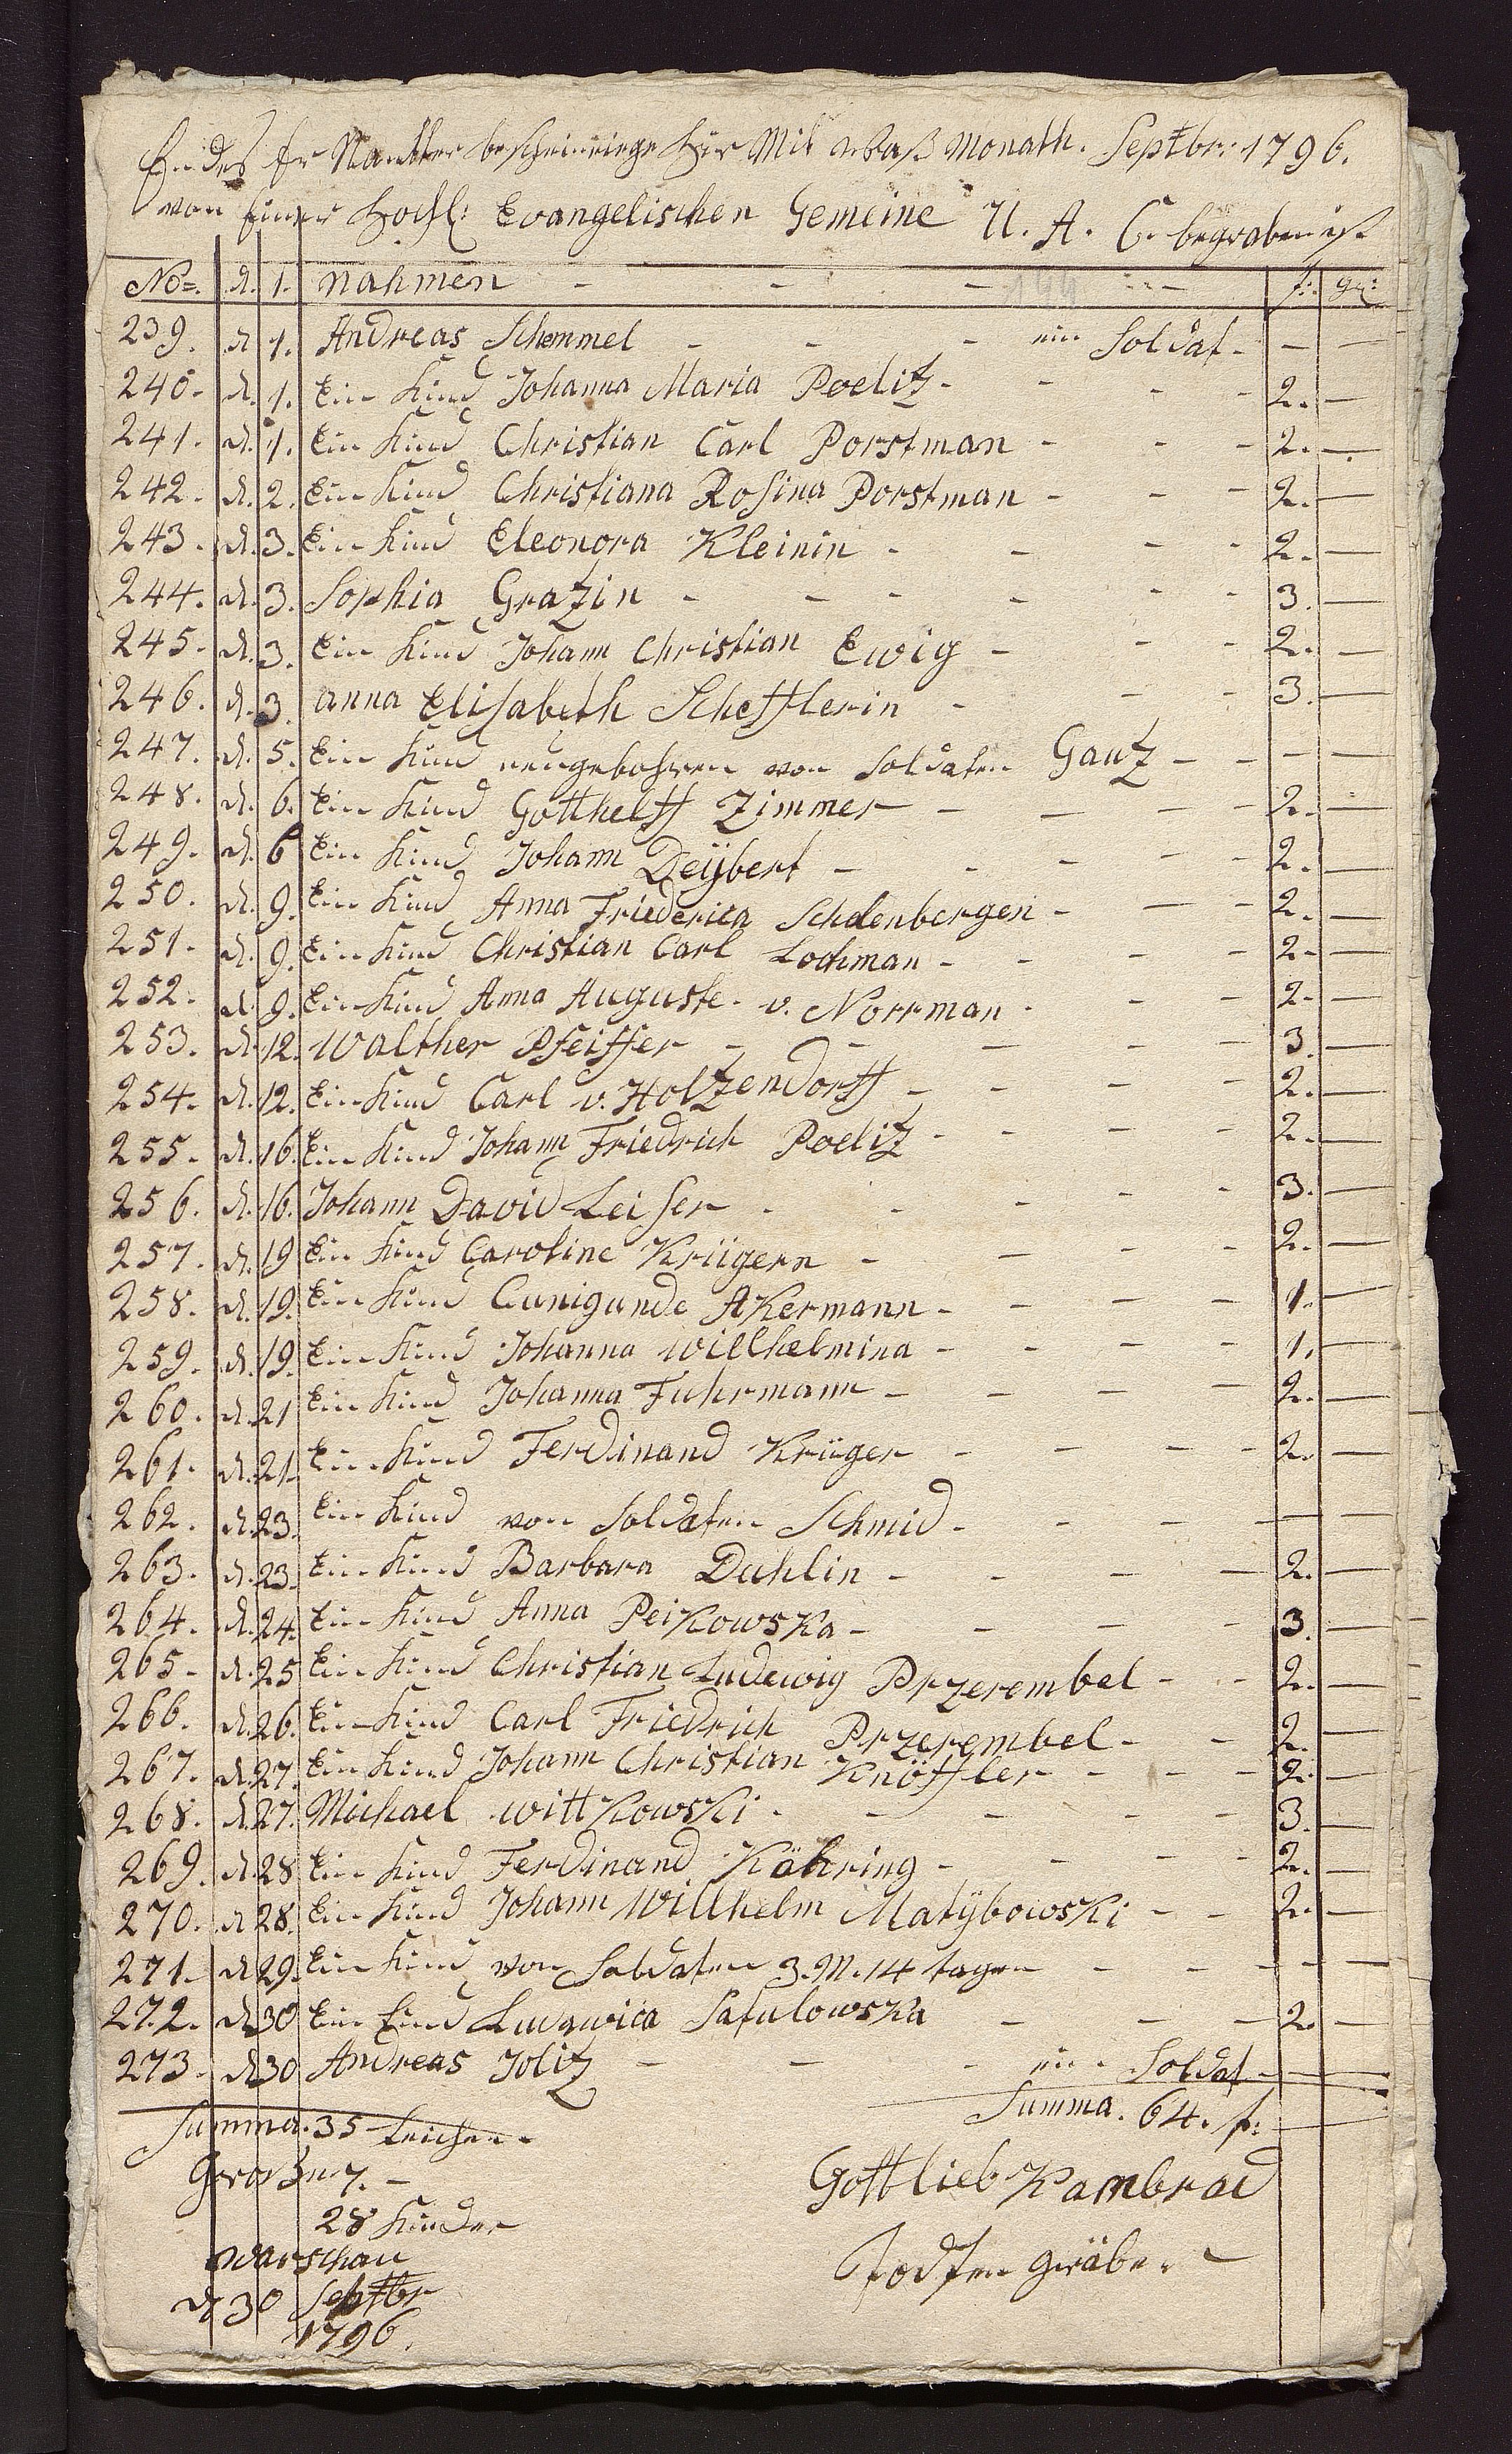 Endes bescheinige hir Mit daß Monath. Septbr: 1796.
von Einer Hochl: Evangelischen Gemeine U. A. C. begraben ist
No=. d. 1. Nahmen - - - - f: gr:
239. d. 1. Andreas Schemmel - - - ein Soldat - - -
240. d. 1. Ein Kind Johanna Maria Poelitz - - - - 2. -
241. d. 1. Ein Kind Christian Carl Porstman - - - 2. -
242. d. 2. Ein Kind Christiana Rosina Porstman - - - 2. -
243. d. 3. Ein Kind Eleonora Kleinin - - - - 2. -
244. d. 3. Sophia Gratzin - - - - - - 3. -
245. d. 3. Ein Kind Johann Christian Ewig - - - 2. -
246. d. 3. Anna Elisabeth Schefflerin - - - 3. -
247. d. 5. Ein Kind neugebohren von Soldaten Gantz - - - -
248. d. 6. Ein Kind Gotthelff Zimmer - - - - 2. -
249. d. 6 Ein Kind Johann Deÿbert - - - - - 2. -
250. d. 9. Ein Kind Anna Friederica Schdenbergen - - - 2. -
251. d. 9. Ein Kind Christian Carl Lochman - - - - 2. -
252. d. 9. Ein Kind Anna Auguste v. Norrman - - - 2. -
253. d. 12. Walther Pfeiffer - - - - - 3. -
254. d. 12. Ein Kind Carl v. Holtzendorff - - - - 2. -
255. d. 16. Ein Kind Johann Friedrich Poelitz - - - - 2. -
256. d. 16. Johann David Leiser - - - - - 3. -
257. d. 19 Ein Kind Caroline Krügern - - - - 2. -
258. d. 19. Ein Kind Cunigunde Akermann - - - - 1. -
259. d. 19. Ein Kind Johanna Willhelmina - - - - 1. -
260. d. 21 Ein Kind Johanna Fuhrmann - - - - 2. -
261. d. 21. Ein Kind Ferdinand Krüger - - - - 2. -
262. d. 23. Ein Kind von Soldaten Schmid - - - - - -
263. d. 23. Ein Kind Barbara Duhlin - - - - 2. -
264. d. 24. Ein Kind Anna Peikowska - - - - 3. -
265. d. 25 Ein Kind Christian Ludewig Przerembel - - 2. -
266. d. 26. Ein Kind Carl Friedrich Przerembel - - 2. -
267. d. 27. Ein Kind Johann Christian Knöffler - - - 2. -
268. d. 27. Michael Wittkowski - - - - - 3. -
269. d. 28 Ein Kind Ferdinand Köhring - - - - 2. -
270. d. 28. Ein Kind Johann Willhelm Matÿbowski - - 2. -
271. d. 29. Ein Kind von Soldaten 3. M. 14 tagen - - - - -
272. d. 30 Ein Kind Ludwica Satulowska - - - 2. -
273. d. 30 Andreas Jolitz - - - ein Soldat - -
Summa. 35 Leichen - Summa. 64. f: -
Großen 7. -
Gottlieb Kambrad
28 Kinder
Warschau
Todten gräber -
d 30 Septbr
1796.